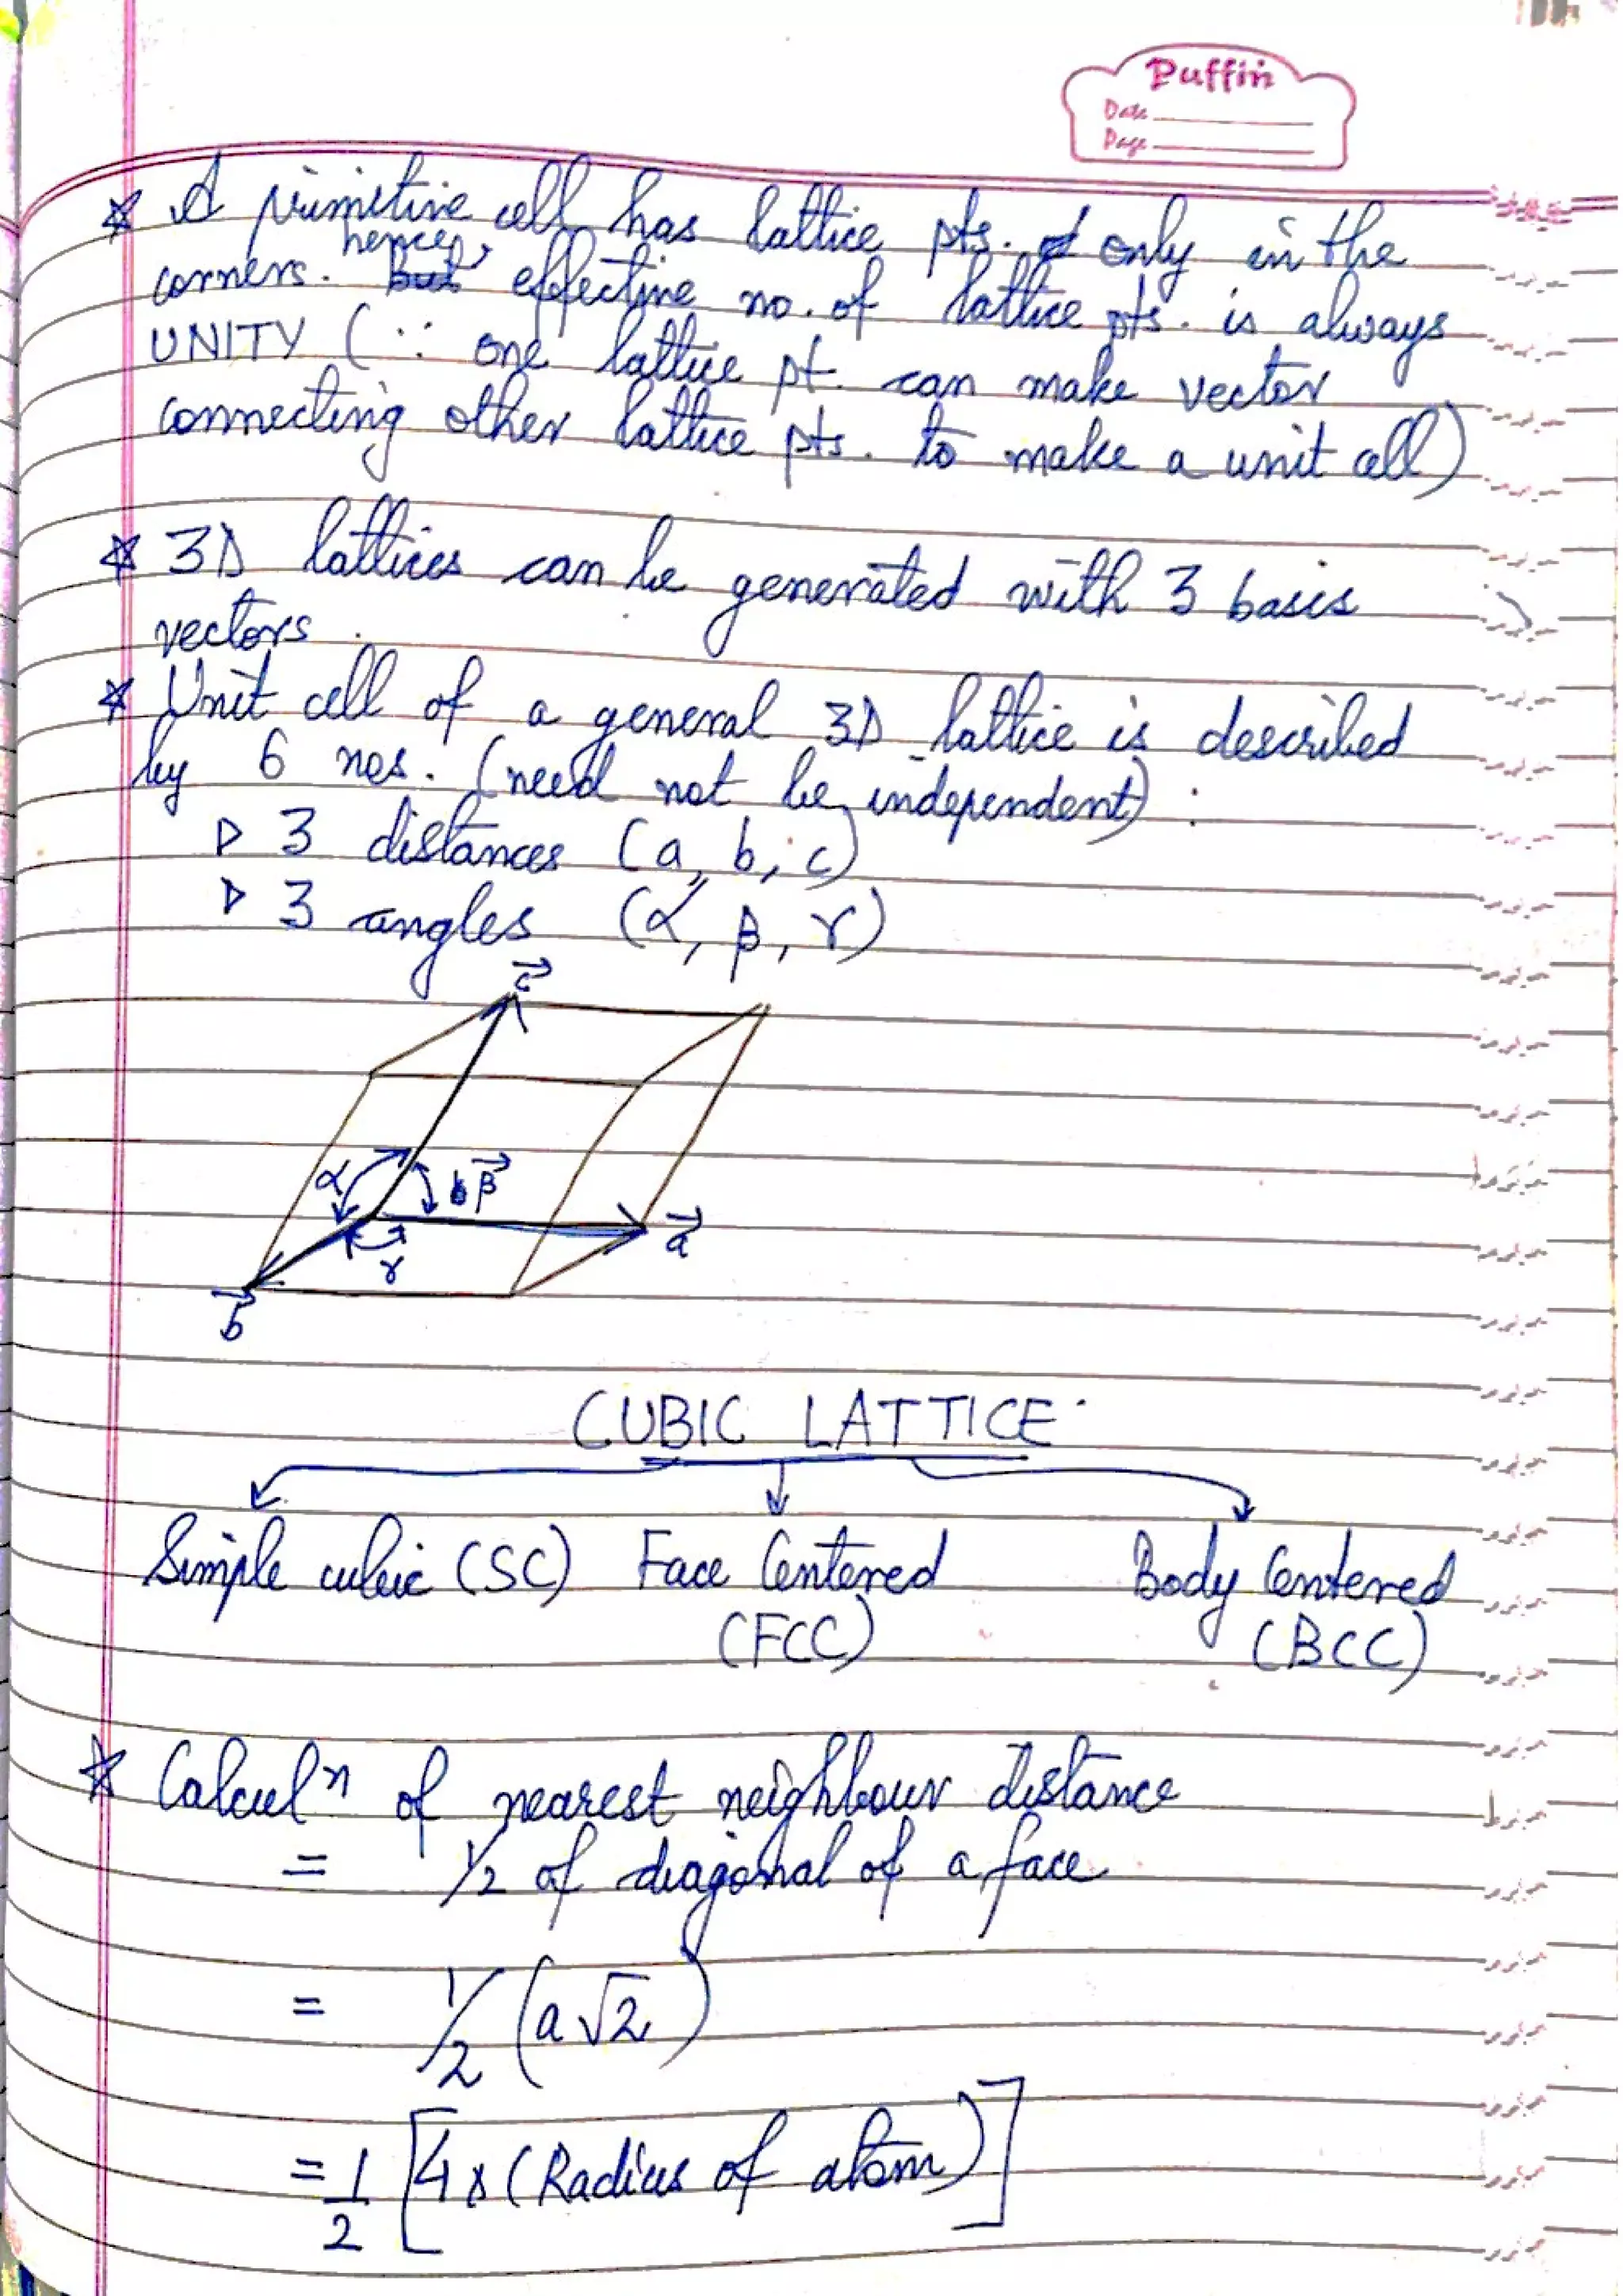 Puffin
Date
Page
* A primitive cell has lattice pts. only in the
corners. hence, effective no. of lattice pts. is always
UNITY (∵ one lattice pt. can make vector
connecting other lattice pts. to make a unit cell)
* 3D lattices can be generated with 3 basis
vectors.
* Unit cell of a general 3D lattice is described
by 6 nos. (need not be independent) :
▷ 3 distances (a, b, c)
▷ 3 angles (α, β, γ)
c⃗
α β⃗
a⃗
γ
b⃗
CUBIC LATTICE
Simple cubic (SC) Face Centered Body Centered
(FCC) (BCC)
* Calculⁿ of nearest neighbour distance
= 1/2 of diagonal of a face
= 1/2 (a√2)
= 1/2 [4 x (Radius of atom)]